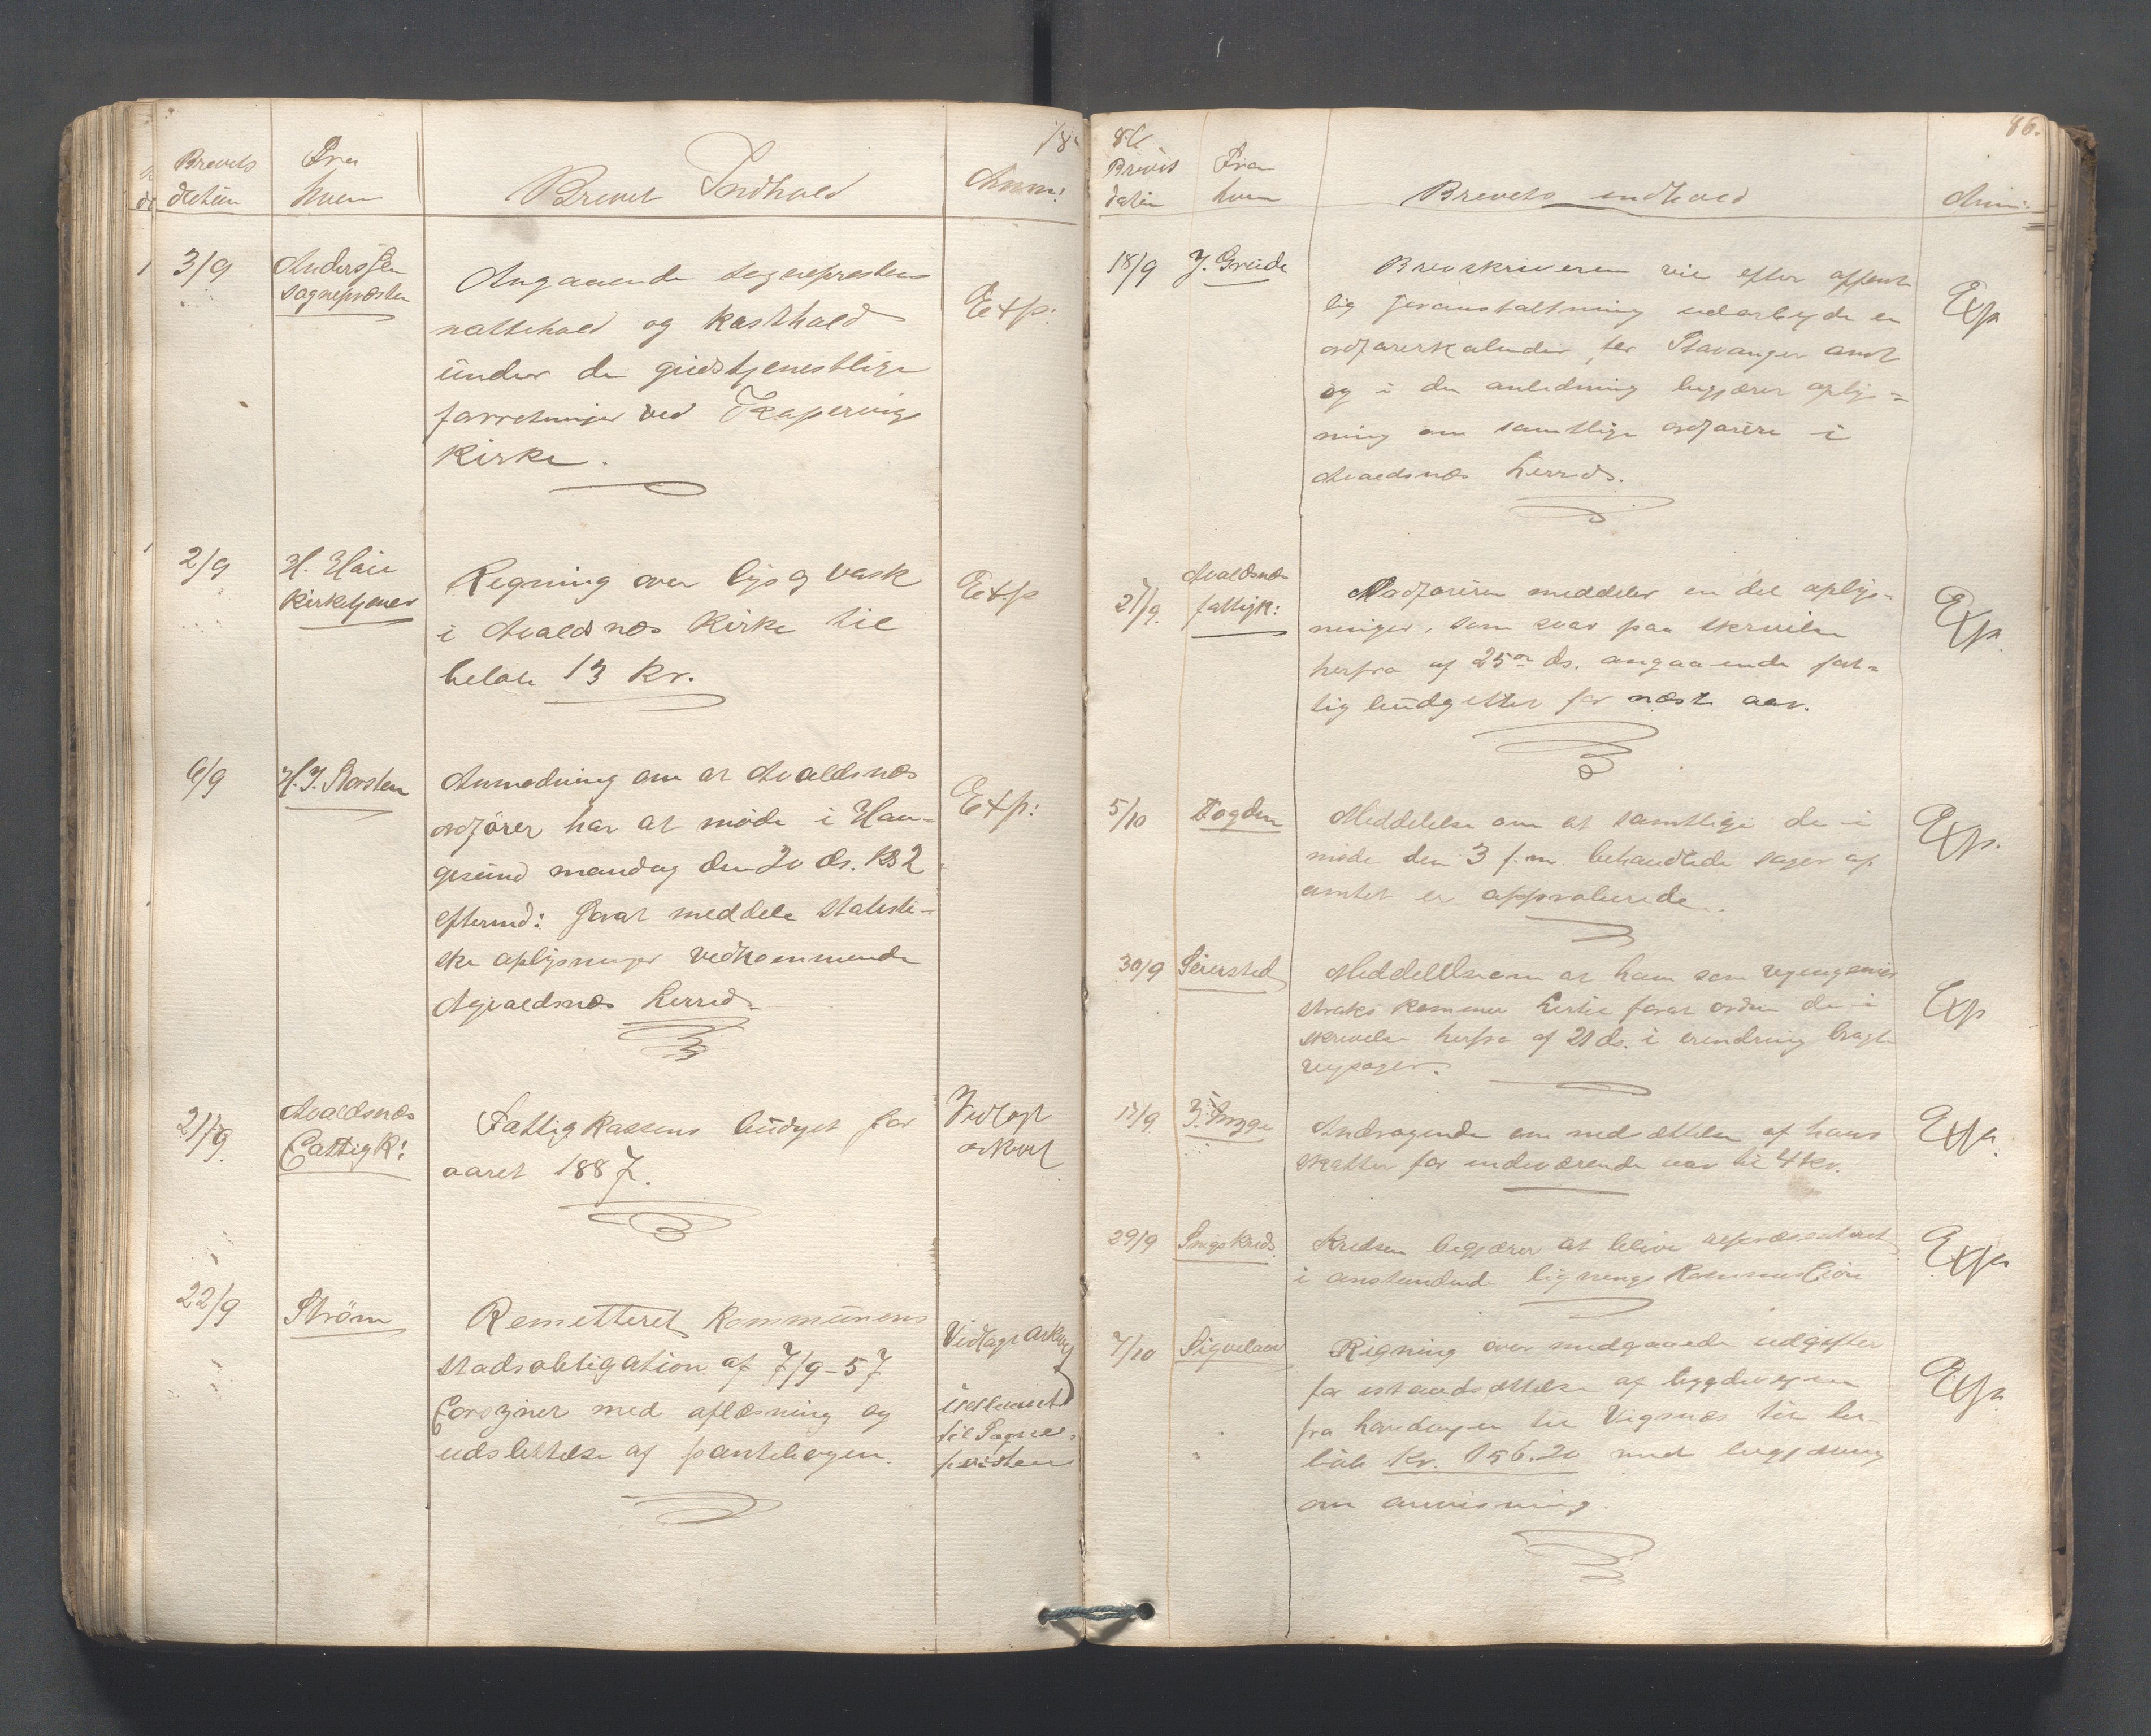 Brevets
datum
Fra
hvem
Brevet Indhold
Anm:
3/9
Anderssen
Sognepræsten
Angaaende sogneprestens
nattehold og kosthold
under de gudstjenestlige
forretninger ved Kopervigs
Kirke.
Exp:
2/9
H. Haie
Kirketjener
Regning over lys og vask
i Avaldsnæs Kirke til
beløb 13 kr.
Exp
6/9
H. J. Storsten
Anmodning om at Avaldsnæs
ordfører har at møde i Hau-
gesund mandag den 20 ds. Kl 2
eftermd: forat meddele statisti-
ske oplysninger vedkommende
Agvaldsnæs herred
Exp:
21/9
Avaldsnæs
Fattigk:
Fattigkassens budget for
aaret 1887.
Vedlagt
arkivet
22/9
Strøm
Remitteret Kommunens
stadsobligation af 7/9-57
forsynet med aflæsning og
udslettelse af pantebogen.
Vedlagt arkivet
til Sogne-
presten
86
86.
Brevets
datum
Fra
hvem
Brevets indhold
Anm:
18/9
J. Greide
Brevskriveren vil efter offent
lig foranstaltning udarbeyde en
ordførerkalender for Stavanger amt
og i den anledning begjærer oplys=
ning om samtlige ordførere i
Avaldsnæs herred.
Exp
27/9.
Avaldsnæs
fattigk:
Ordføreren meddeler en del oplys-
ninger, som svar paa skrivelse
herfra af 25de ds. angaaende fat=
tigbudgettet for næste aar.
Exp.
5/10
Fogden
Meddelelse om at samtlige de i
møde den 3 f.m. behandlede sager af
amtet er approberede.
Exp.
30/9
Seiersted
Meddelelse om at han som veyingeniør
straks kommer hertil forat ordne de i
skrivelse herfra af 21 ds. i erindring bragte
veysager.
Exp
17/9.
Andragende om nedsættelse af hans
skatter for indeværende aar til 4 kr.
Exp.
29/9
Kredsen begjærer at blive repræsenteret
i anstundende ligningskommission
Exp
7/10
Sigvelaen
Rigning over medgaaede udgifter
for istandsættelse af bygdeveyen
fra havdingen til Vigsnæs til be-
løb Kr. 156.20 med begjæring
om anvisning.
Exp.